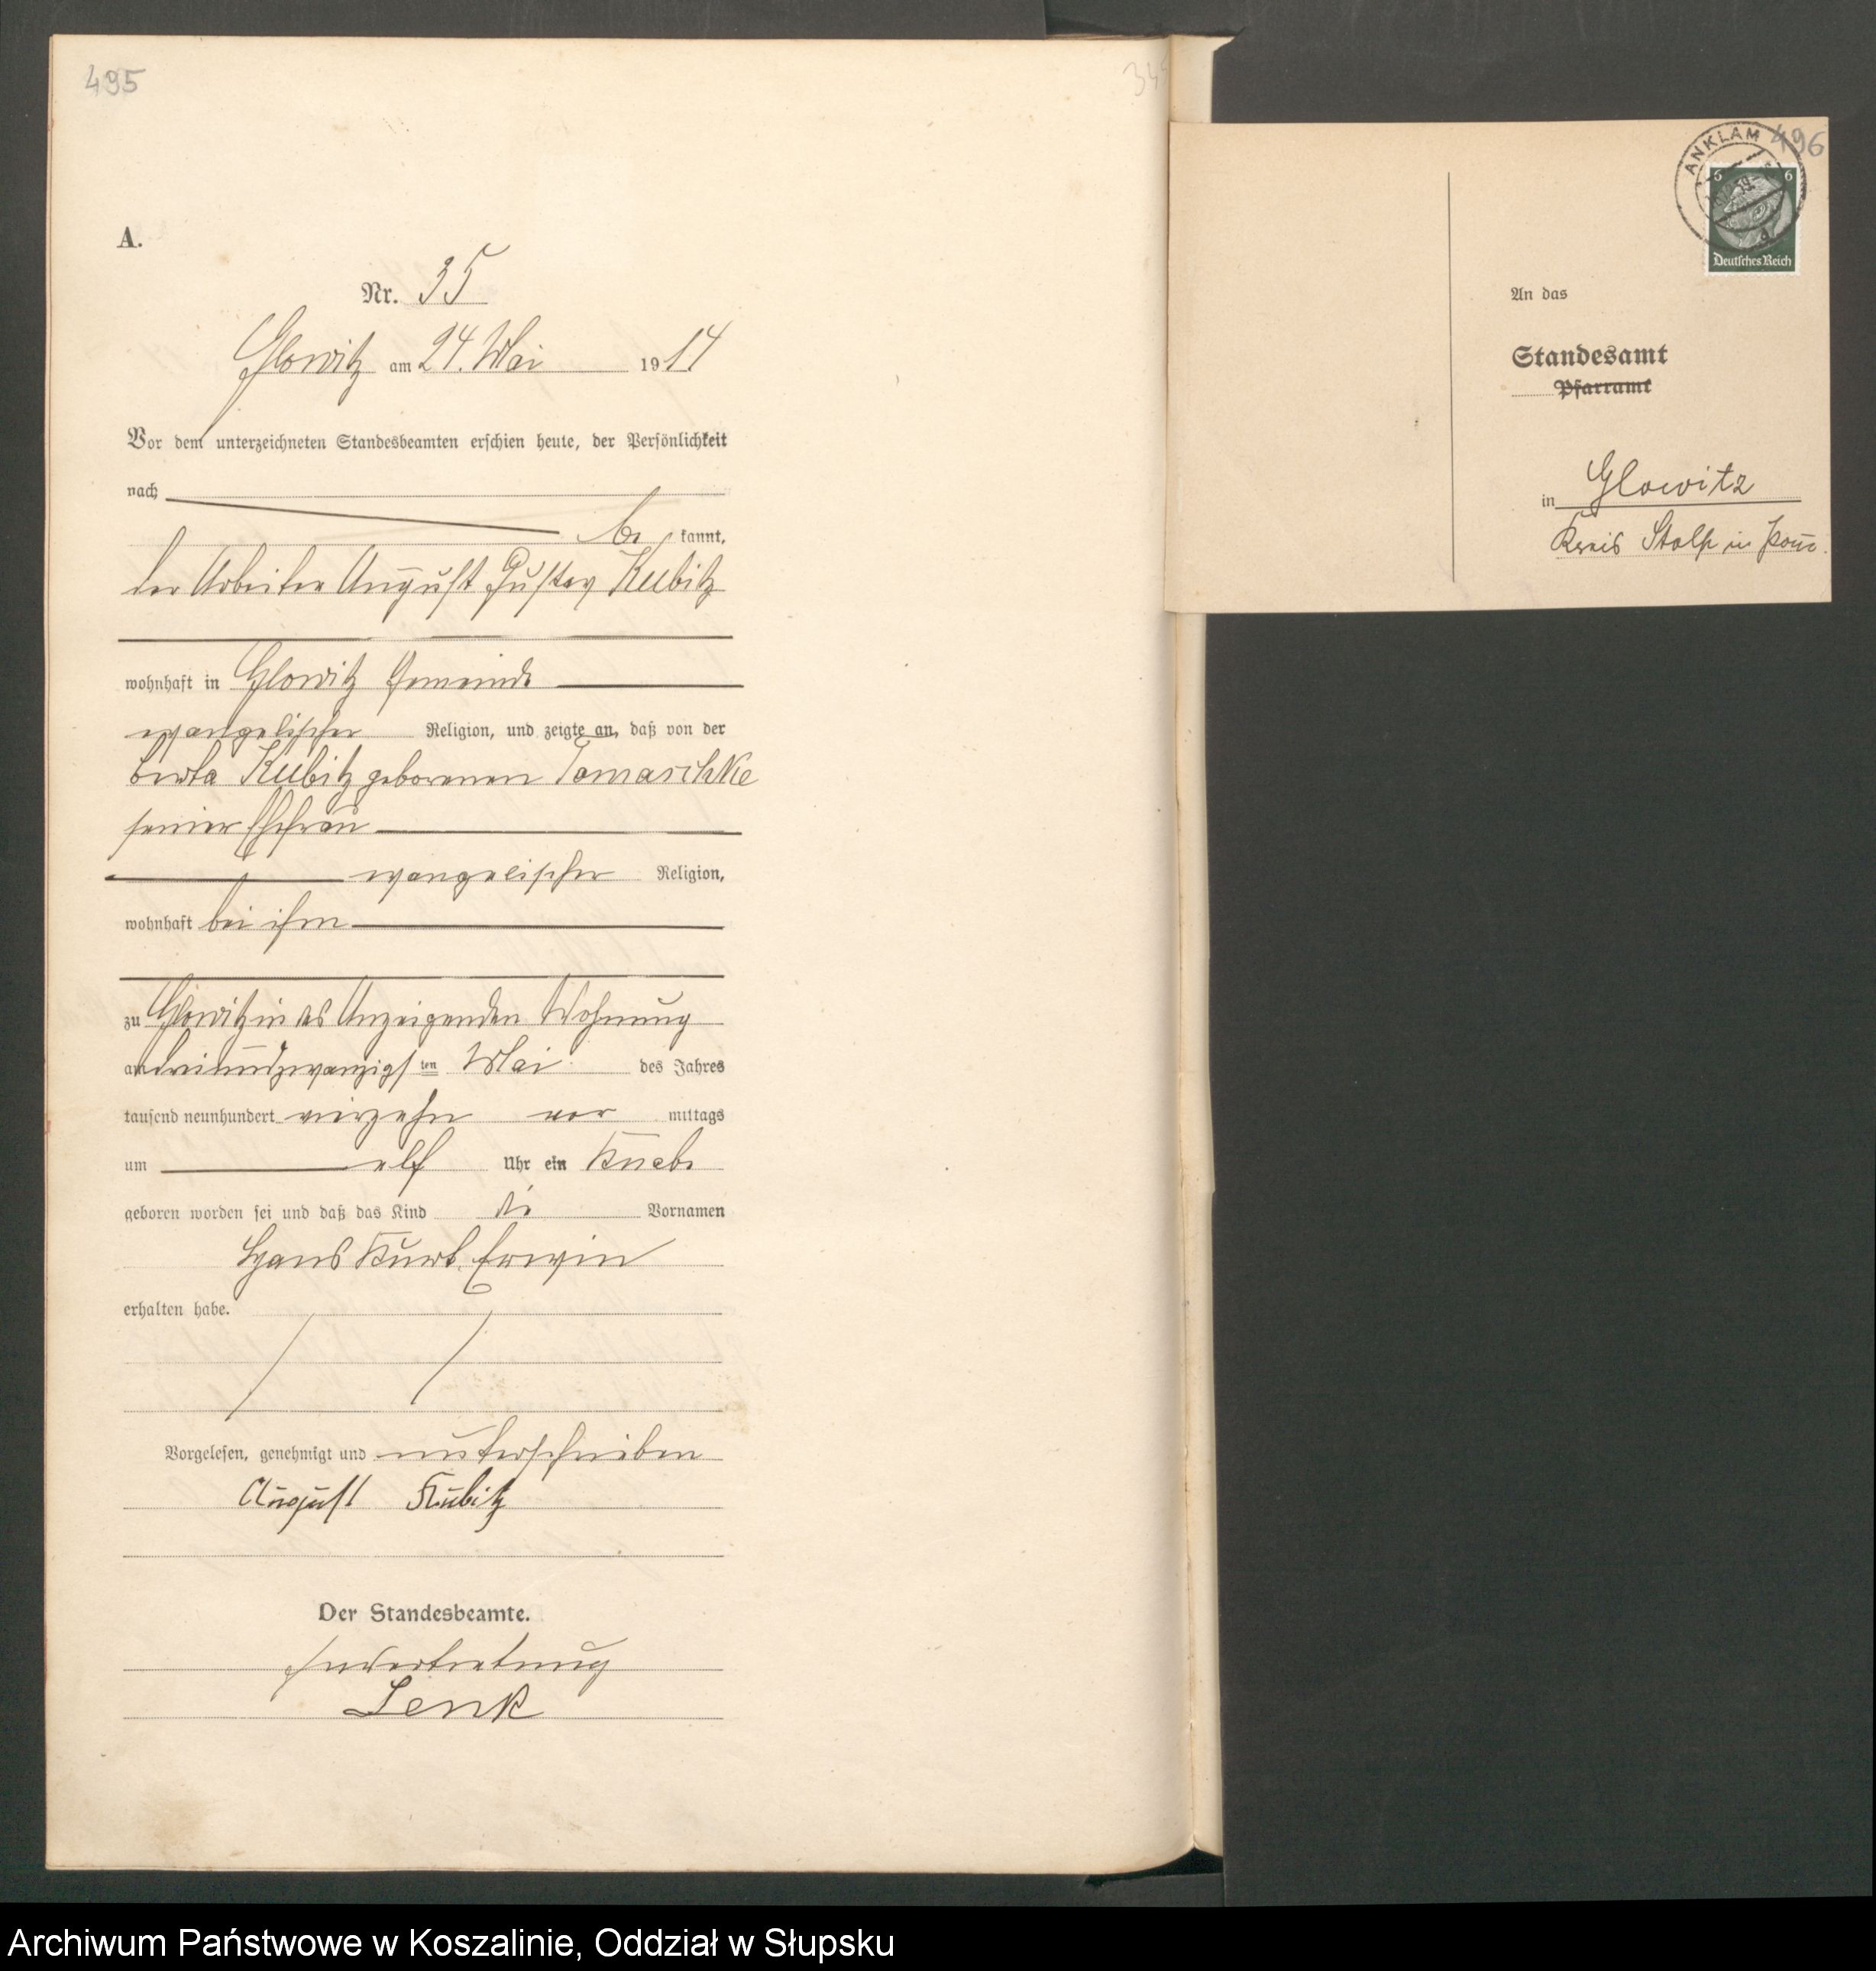 495
345
A.
Nr. 35
Glowitz am 24. Mai 1914
Vor dem unterzeichneten Standesbeamten erschien heute, der Persönlichkeit
nach
be kannt,
der Arbeiter August Gustav Kubitz
wohnhaft in Glowitz Gemeinde
evangelischer Religion, und zeigte an, daß von der
Berta Kubitz geborenen Tomaschke
seiner Ehefrau
evangelischer Religion,
wohnhaft bei ihm
zu Glowitz in des Anzeigenden Wohnung
am dreiundzwanzigsten Mai des Jahres
tausend neunhundert vierzehn vor mittags
um elf Uhr ein Knabe
geboren worden sei und daß das Kind die Vornamen
Hans Kurt Erwin
erhalten habe.
Vorgelesen, genehmigt und unterschrieben
August Kubitz
Der Standesbeamte.
In Vertretung
Lenk
496
ANKLAM
5 6
Deutsches Reich
An das
Standesamt
Pfarramt
in Glowitz
Kreis Stolp in Pom.
Archiwum Państwowe w Koszalinie, Oddział w Słupsku